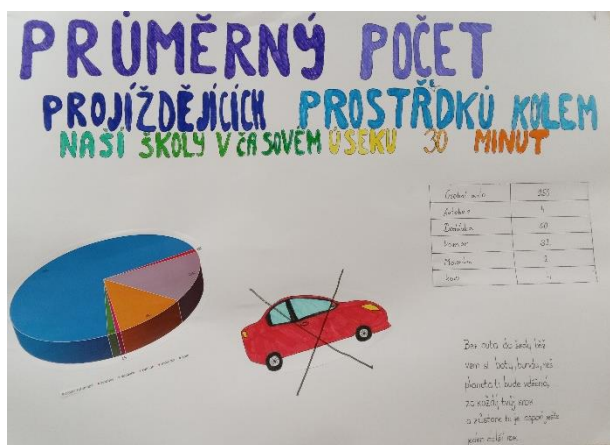 PRŮMĚRNÝ POČET
PROJÍŽDĚJÍCÍCH PROSTŘDKŮ KOLEM
NAŠÍ ŠKOLY V ČASOVÉM ÚSEKU 30 MINUT
Osobní auto
Autobus 4
Dodávka
Kamion
2
Kolo
Bez auta do školy běž
vem si boty, bundu, věz
planeta ti bude vděčná
za každý tvůj krok
a zůstane tu je aspoň ještě
jeden další rok